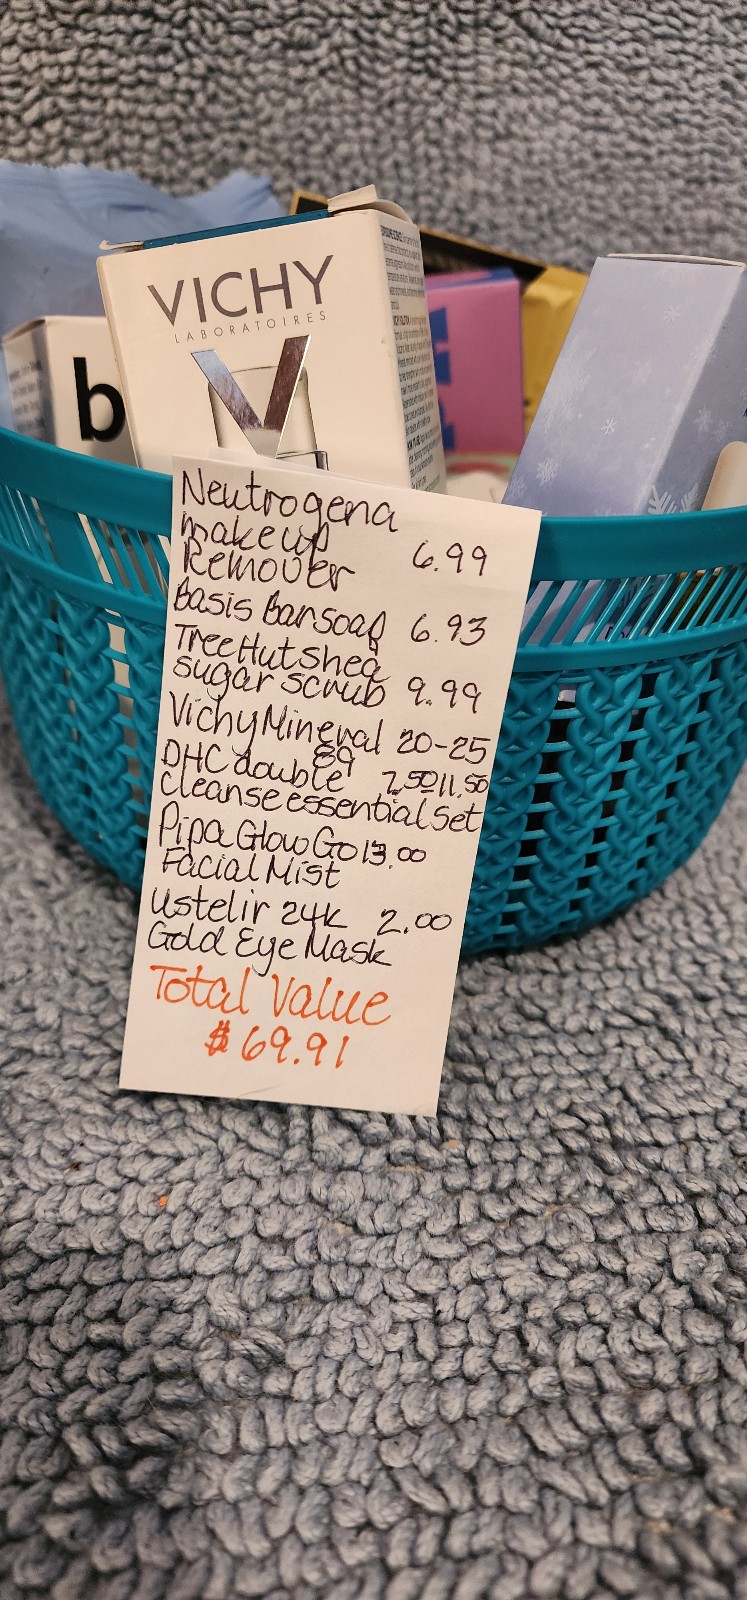 VICHY
LABORATOIRES
b
Neutrogena
makeup
Remover 6.99
Basis Bar soap 6.93
Tree Hut shea
sugar scrub 9.99
Vichy Mineral 20-25
89
DHC double 7.50 11.50
cleanse essential set
Pipa Glow Go 13.00
Facial Mist
Ustelir 24k 2.00
Gold Eye Mask
Total Value
$69.91